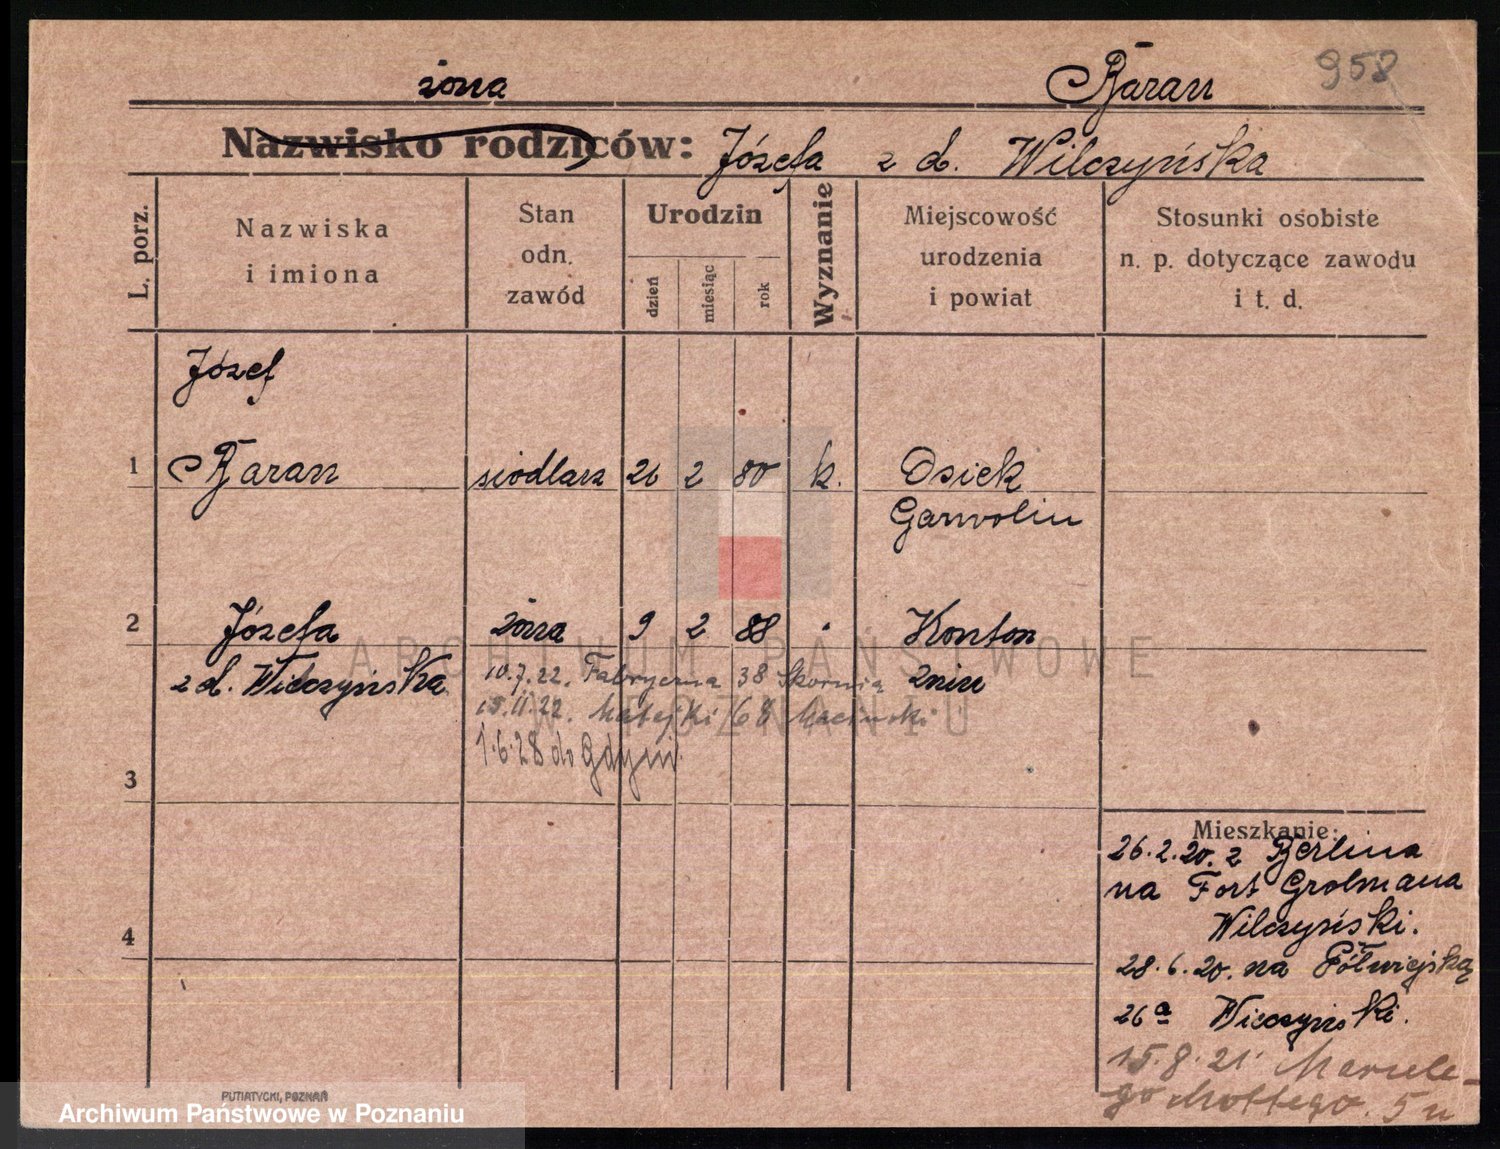 958
żona Baran
Nazwisko rodziców: Józefa z d. Wilczyńska
L. porz.
Nazwiska
i imiona
Stan
odn.
zawód
Urodzin
dzień
miesiąc
rok
Wyznanie
Miejscowość
urodzenia
i powiat
Stosunki osobiste
n. p. dotyczące zawodu
i t. d.
Józef
1 Baran siodlarz 26 2 80 k. Osiek
Garwolin
2 Józefa żona 9 2 88 Konton
z d. Wilczyńska Żnin
10.7.22. Fabryczna 38 Skornia
15.11.22. Matejki 68
1.6.28 do Gdyni
3
4
Mieszkanie:
26.2.20. z Berlina
na Fort Grolmana
Wilczyński.
28.6.20. na Półwiejską
26a Wilczyński.
15.8.21. Marcele-
go Mottego. 5
PUTIATYCKI, POZNAŃ
ARCHIWUM PAŃSTWOWE
W POZNANIU
Archiwum Państwowe w Poznaniu